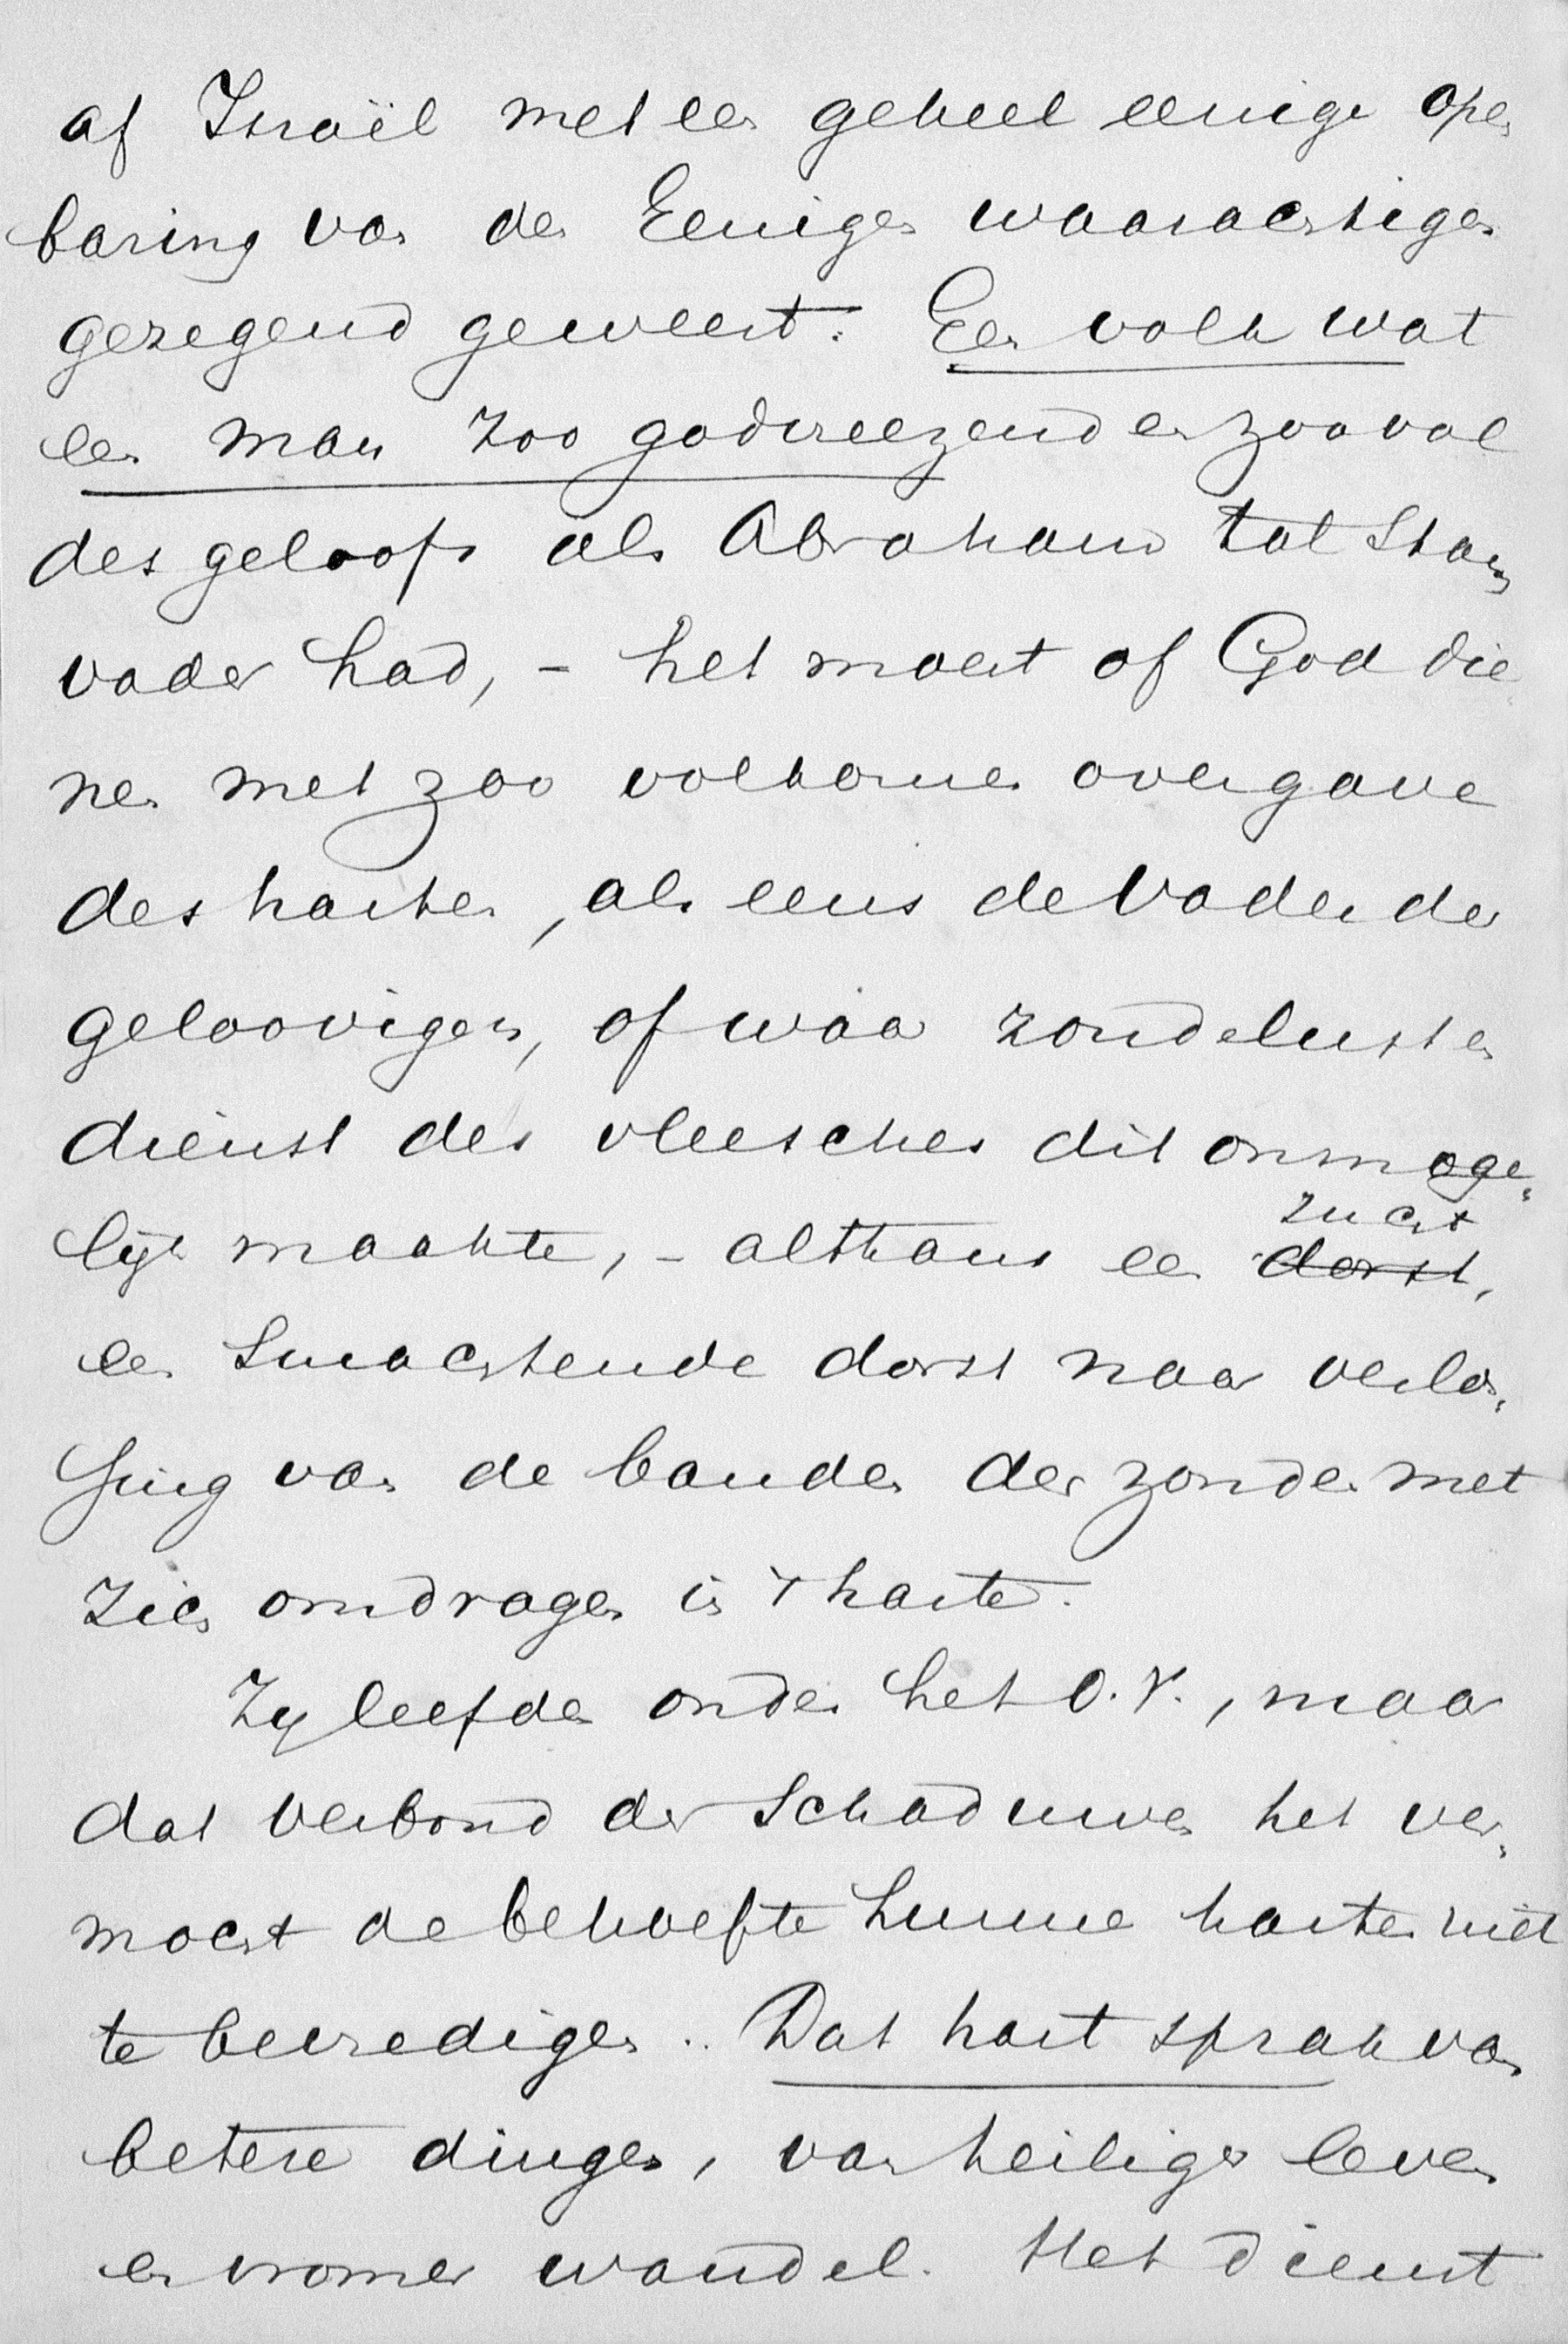 af Israël met een geheel eenige open
baring van den Eenigen waarachtigen
gezegend geweest. Een volk wat
een man zoo godvreezend en zoo vol
des geloofs als Abraham tot Stam
vader had, – het moest of God die„
nen met zoo volkomen overgave
des harten, als eens de Vader der
geloovigen, of waar zondelust en
dienst des vleesches dit onmoge„
lijk maakte, – althans een zucht
een smachtende dorst naar verlos„
sing van de banden der zonde met
zich omdragen in 't harte.
Zij leefden onder het O.V., maar
dat verbond der Schaduwen het ver„
mocht de behoefte hunner harten niet
te bevredigen. Dat hart sprak van
betere dingen, van heiliger leven
en vromer wandel. Het dienst